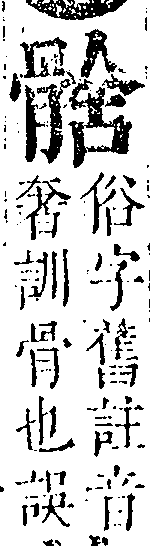 俗字舊註音
奢訓骨也誤